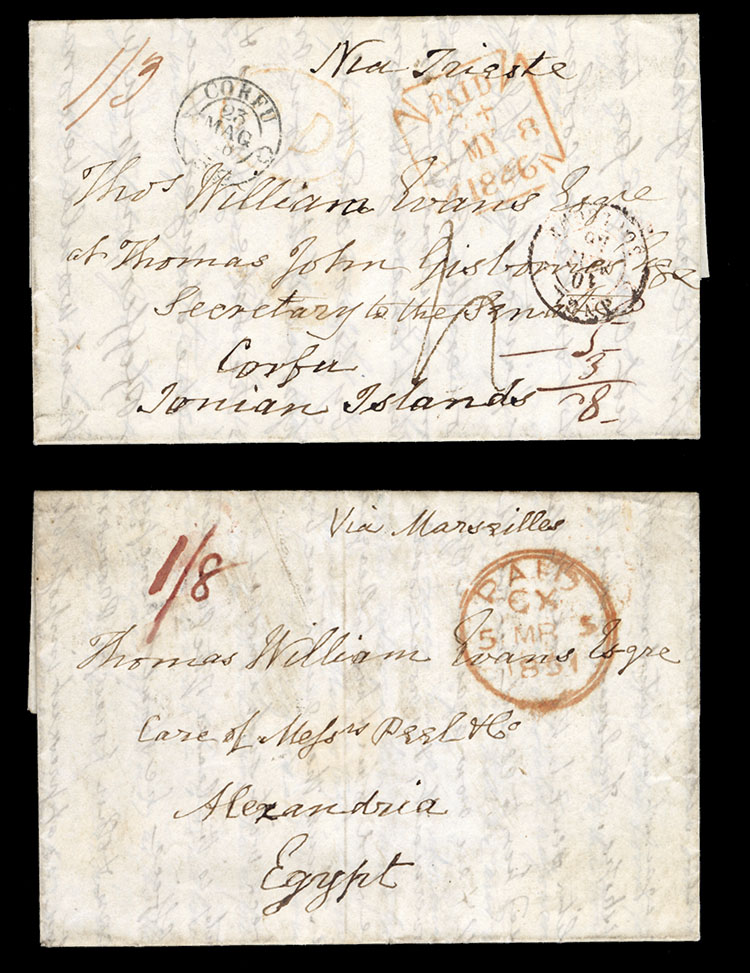 1/9
Via Trieste
CORFU
23
MAG
PD
PAID
MY 8
1846
Thos William Evans Esqre
at Thomas John Gisborne's Esqe
Secretary to the Senate
Corfu
Ionian Islands
5
3
8
Via Marseilles
1/8
PAID
CX
5 MR 5
1851
Thomas William Evans Esqre
Care of Messrs Peel & Co
Alexandria
Egypt